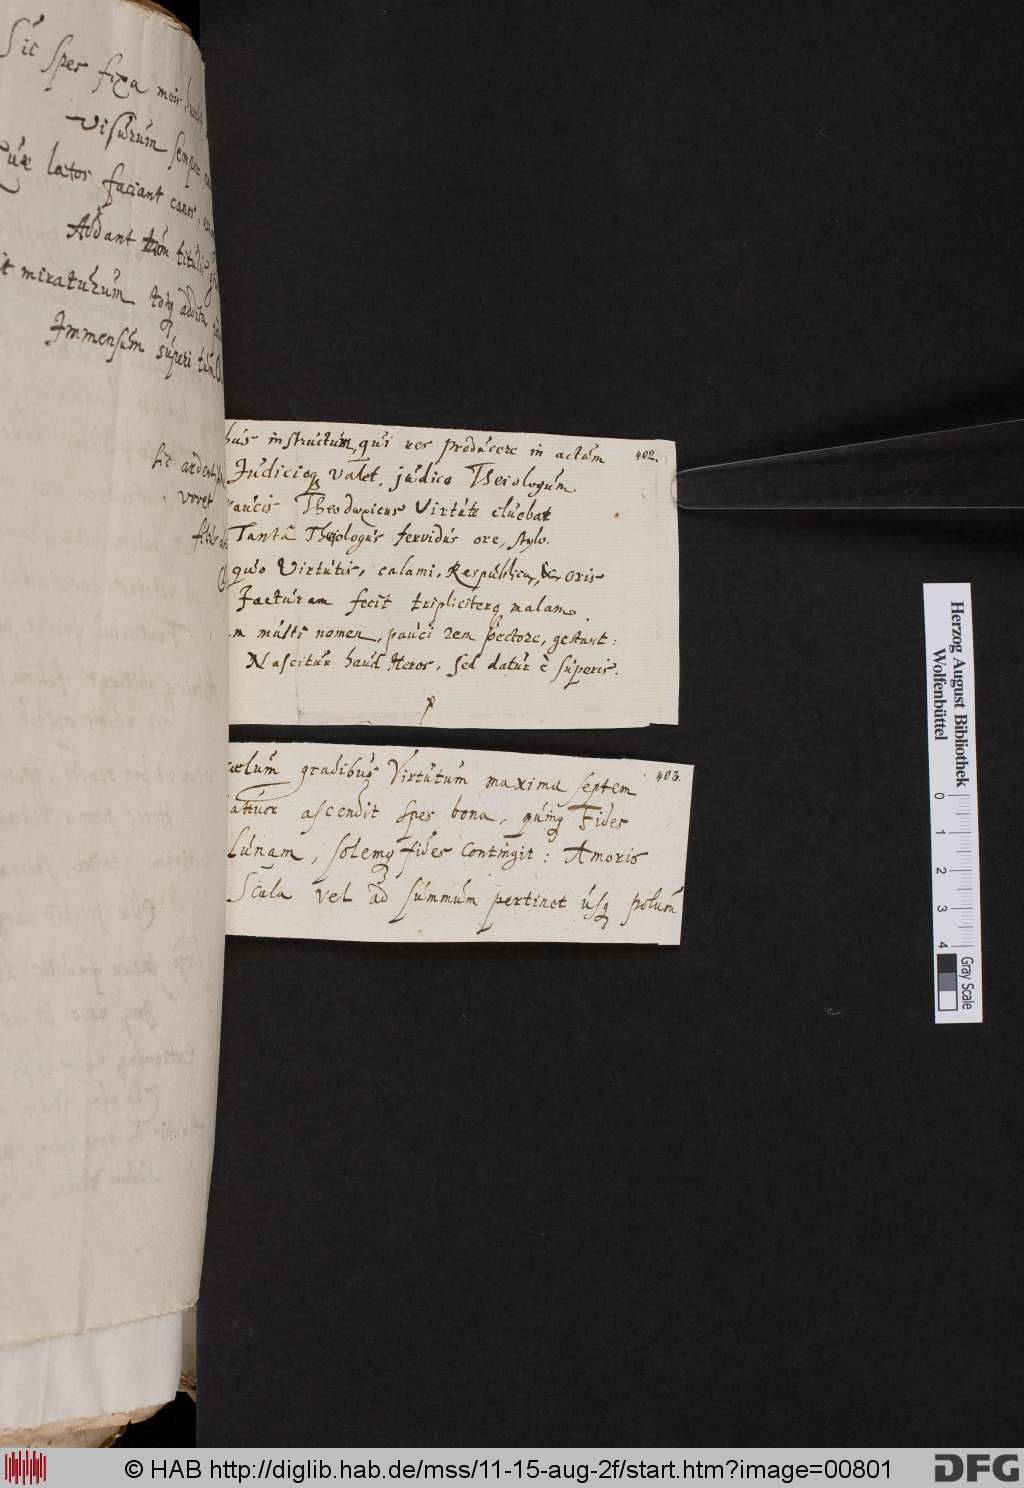 Sic spes fixa meis
Visurum semper
Quæ latos faciant canos,
Addant tum tituli
it miraturum totq addita
Immensum superi tam
Sic ardenti
vovet
402.
bus instructum, qui res producere in actum
Judicioq valet, judico Theiologum
paucis Theodoricus Virtute cluebat
Tantâ Theologus fervidus ore, stylo.
quo Virtutis, calami, Respublica, & oris
Jacturam fecit tripliciterq malam.
m multi nomen, pauci rem pectore, gestant:
Nascitur haud Heros, sed datur è superis.
403.
cælum gradibus Virtutum maxima septem
attuor ascendit spes bona, quinq Fides
Lunam, solemq fides contingit: Amoris
Scala vel ad summum pertinet usq polum
Herzog August Bibliothek
Wolfenbüttel
0 1 2 3 4
Gray Scale
© HAB http://diglib.hab.de/mss/11-15-aug-2f/start.htm?image=00801
DFG